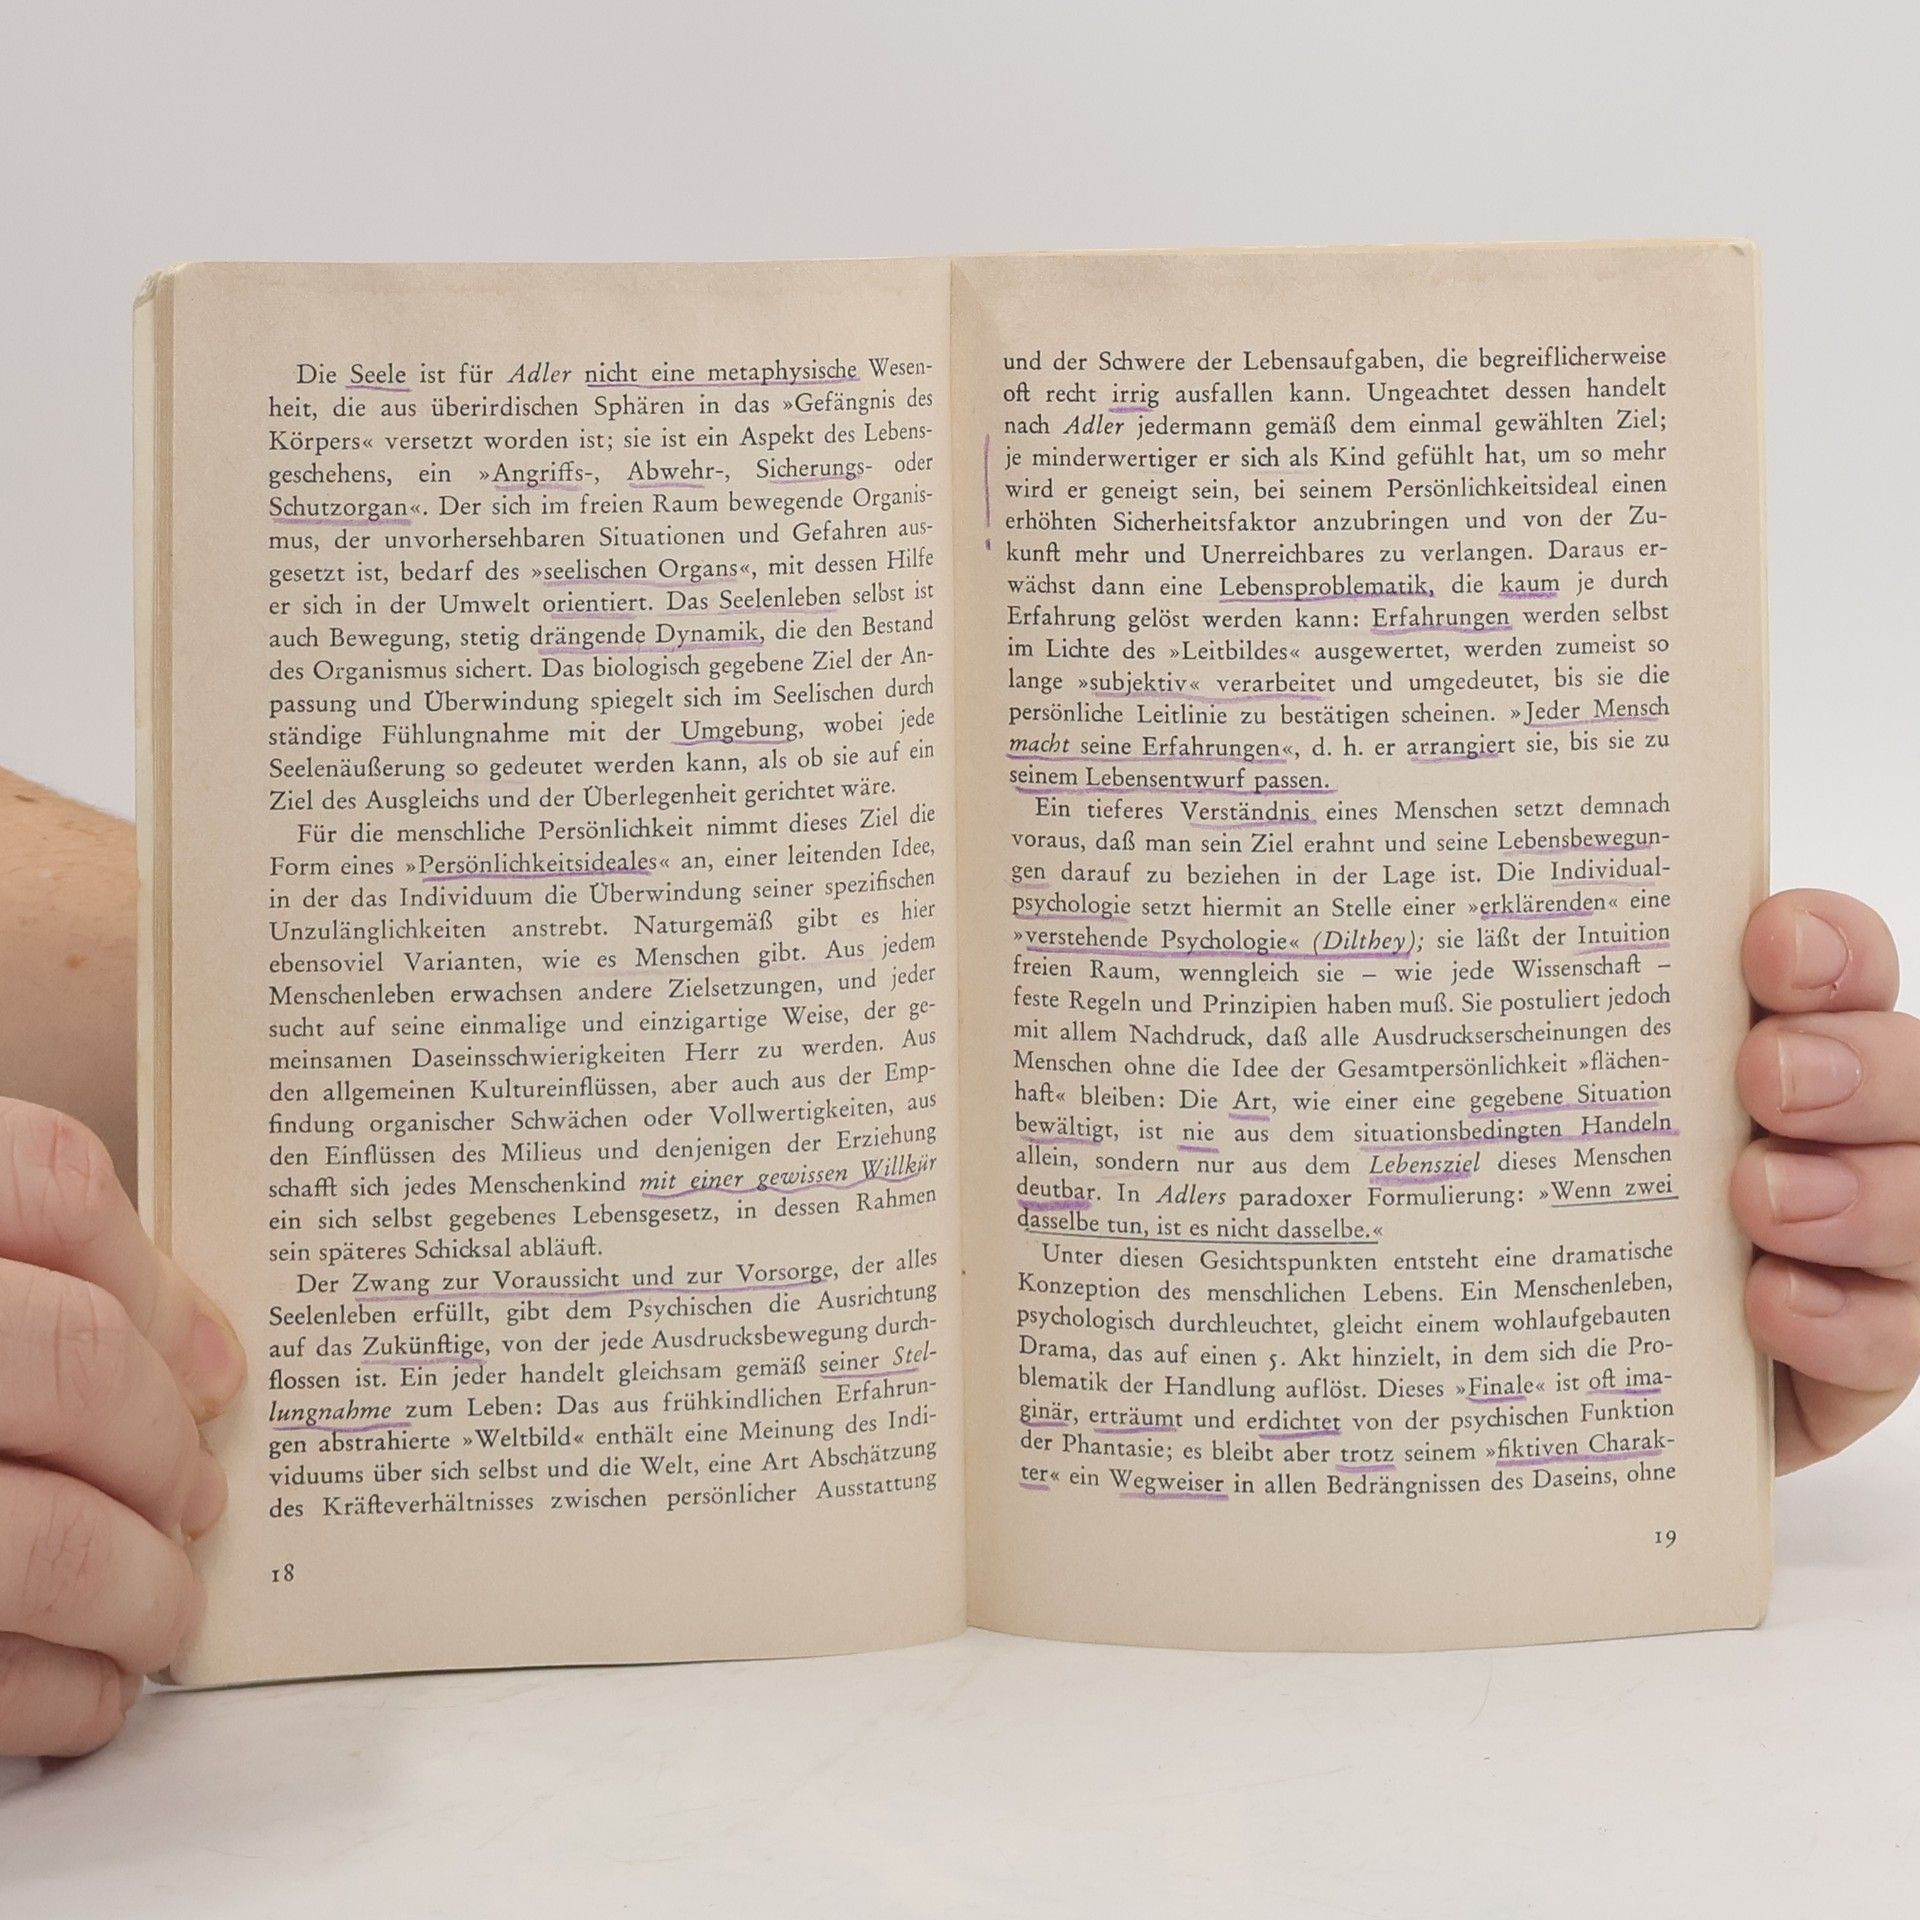 Die Seele ist für Adler nicht eine metaphysische Wesen-
heit, die aus überirdischen Sphären in das »Gefängnis des
Körpers« versetzt worden ist; sie ist ein Aspekt des Lebens-
geschehens, ein »Angriffs-, Abwehr-, Sicherungs- oder
Schutzorgan«. Der sich im freien Raum bewegende Organis-
mus, der unvorhersehbaren Situationen und Gefahren aus-
gesetzt ist, bedarf des »seelischen Organs«, mit dessen Hilfe
er sich in der Umwelt orientiert. Das Seelenleben selbst ist
auch Bewegung, stetig drängende Dynamik, die den Bestand
des Organismus sichert. Das biologisch gegebene Ziel der An-
passung und Überwindung spiegelt sich im Seelischen durch
ständige Fühlungnahme mit der Umgebung, wobei jede
Seelenäußerung so gedeutet werden kann, als ob sie auf ein
Ziel des Ausgleichs und der Überlegenheit gerichtet wäre.
Für die menschliche Persönlichkeit nimmt dieses Ziel die
Form eines »Persönlichkeitsideales« an, einer leitenden Idee,
in der das Individuum die Überwindung seiner spezifischen
Unzulänglichkeiten anstrebt. Naturgemäß gibt es hier
ebensoviel Varianten, wie es Menschen gibt. Aus jedem
Menschenleben erwachsen andere Zielsetzungen, und jeder
sucht auf seine einmalige und einzigartige Weise, der ge-
meinsamen Daseinsschwierigkeiten Herr zu werden. Aus
den allgemeinen Kultureinflüssen, aber auch aus der Emp-
findung organischer Schwächen oder Vollwertigkeiten, aus
den Einflüssen des Milieus und denjenigen der Erziehung
schafft sich jedes Menschenkind mit einer gewissen Willkür
ein sich selbst gegebenes Lebensgesetz, in dessen Rahmen
sein späteres Schicksal abläuft.
Der Zwang zur Voraussicht und zur Vorsorge, der alles
Seelenleben erfüllt, gibt dem Psychischen die Ausrichtung
auf das Zukünftige, von der jede Ausdrucksbewegung durch-
flossen ist. Ein jeder handelt gleichsam gemäß seiner Stel-
lungnahme zum Leben: Das aus frühkindlichen Erfahrun-
gen abstrahierte »Weltbild« enthält eine Meinung des Indi-
viduums über sich selbst und die Welt, eine Art Abschätzung
des Kräfteverhältnisses zwischen persönlicher Ausstattung
18
und der Schwere der Lebensaufgaben, die begreiflicherweise
oft recht irrig ausfallen kann. Ungeachtet dessen handelt
nach Adler jedermann gemäß dem einmal gewählten Ziel;
je minderwertiger er sich als Kind gefühlt hat, um so mehr
wird er geneigt sein, bei seinem Persönlichkeitsideal einen
erhöhten Sicherheitsfaktor anzubringen und von der Zu-
kunft mehr und Unerreichbares zu verlangen. Daraus er-
wächst dann eine Lebensproblematik, die kaum je durch
Erfahrung gelöst werden kann: Erfahrungen werden selbst
im Lichte des »Leitbildes« ausgewertet, werden zumeist so
lange »subjektiv« verarbeitet und umgedeutet, bis sie die
persönliche Leitlinie zu bestätigen scheinen. »Jeder Mensch
macht seine Erfahrungen«, d. h. er arrangiert sie, bis sie zu
seinem Lebensentwurf passen.
Ein tieferes Verständnis eines Menschen setzt demnach
voraus, daß man sein Ziel erahnt und seine Lebensbewegun-
gen darauf zu beziehen in der Lage ist. Die Individual-
psychologie setzt hiermit an Stelle einer »erklärenden« eine
»verstehende Psychologie« (Dilthey); sie läßt der Intuition
freien Raum, wenngleich sie – wie jede Wissenschaft –
feste Regeln und Prinzipien haben muß. Sie postuliert jedoch
mit allem Nachdruck, daß alle Ausdruckserscheinungen des
Menschen ohne die Idee der Gesamtpersönlichkeit »flächen-
haft« bleiben: Die Art, wie einer eine gegebene Situation
bewältigt, ist nie aus dem situationsbedingten Handeln
allein, sondern nur aus dem Lebensziel dieses Menschen
deutbar. In Adlers paradoxer Formulierung: »Wenn zwei
dasselbe tun, ist es nicht dasselbe.«
Unter diesen Gesichtspunkten entsteht eine dramatische
Konzeption des menschlichen Lebens. Ein Menschenleben,
psychologisch durchleuchtet, gleicht einem wohlaufgebauten
Drama, das auf einen 5. Akt hinzielt, in dem sich die Pro-
blematik der Handlung auflöst. Dieses »Finale« ist oft ima-
ginär, erträumt und erdichtet von der psychischen Funktion
der Phantasie; es bleibt aber trotz seinem »fiktiven Charak-
ter« ein Wegweiser in allen Bedrängnissen des Daseins, ohne
19